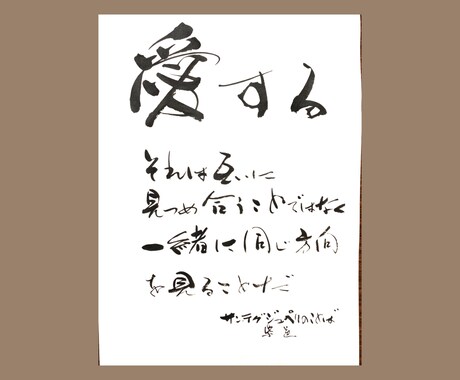 愛する
それは互いに
見つめ合うことではなく
一緒に同じ方向
を見ることだ
サンテグジュペリのことば